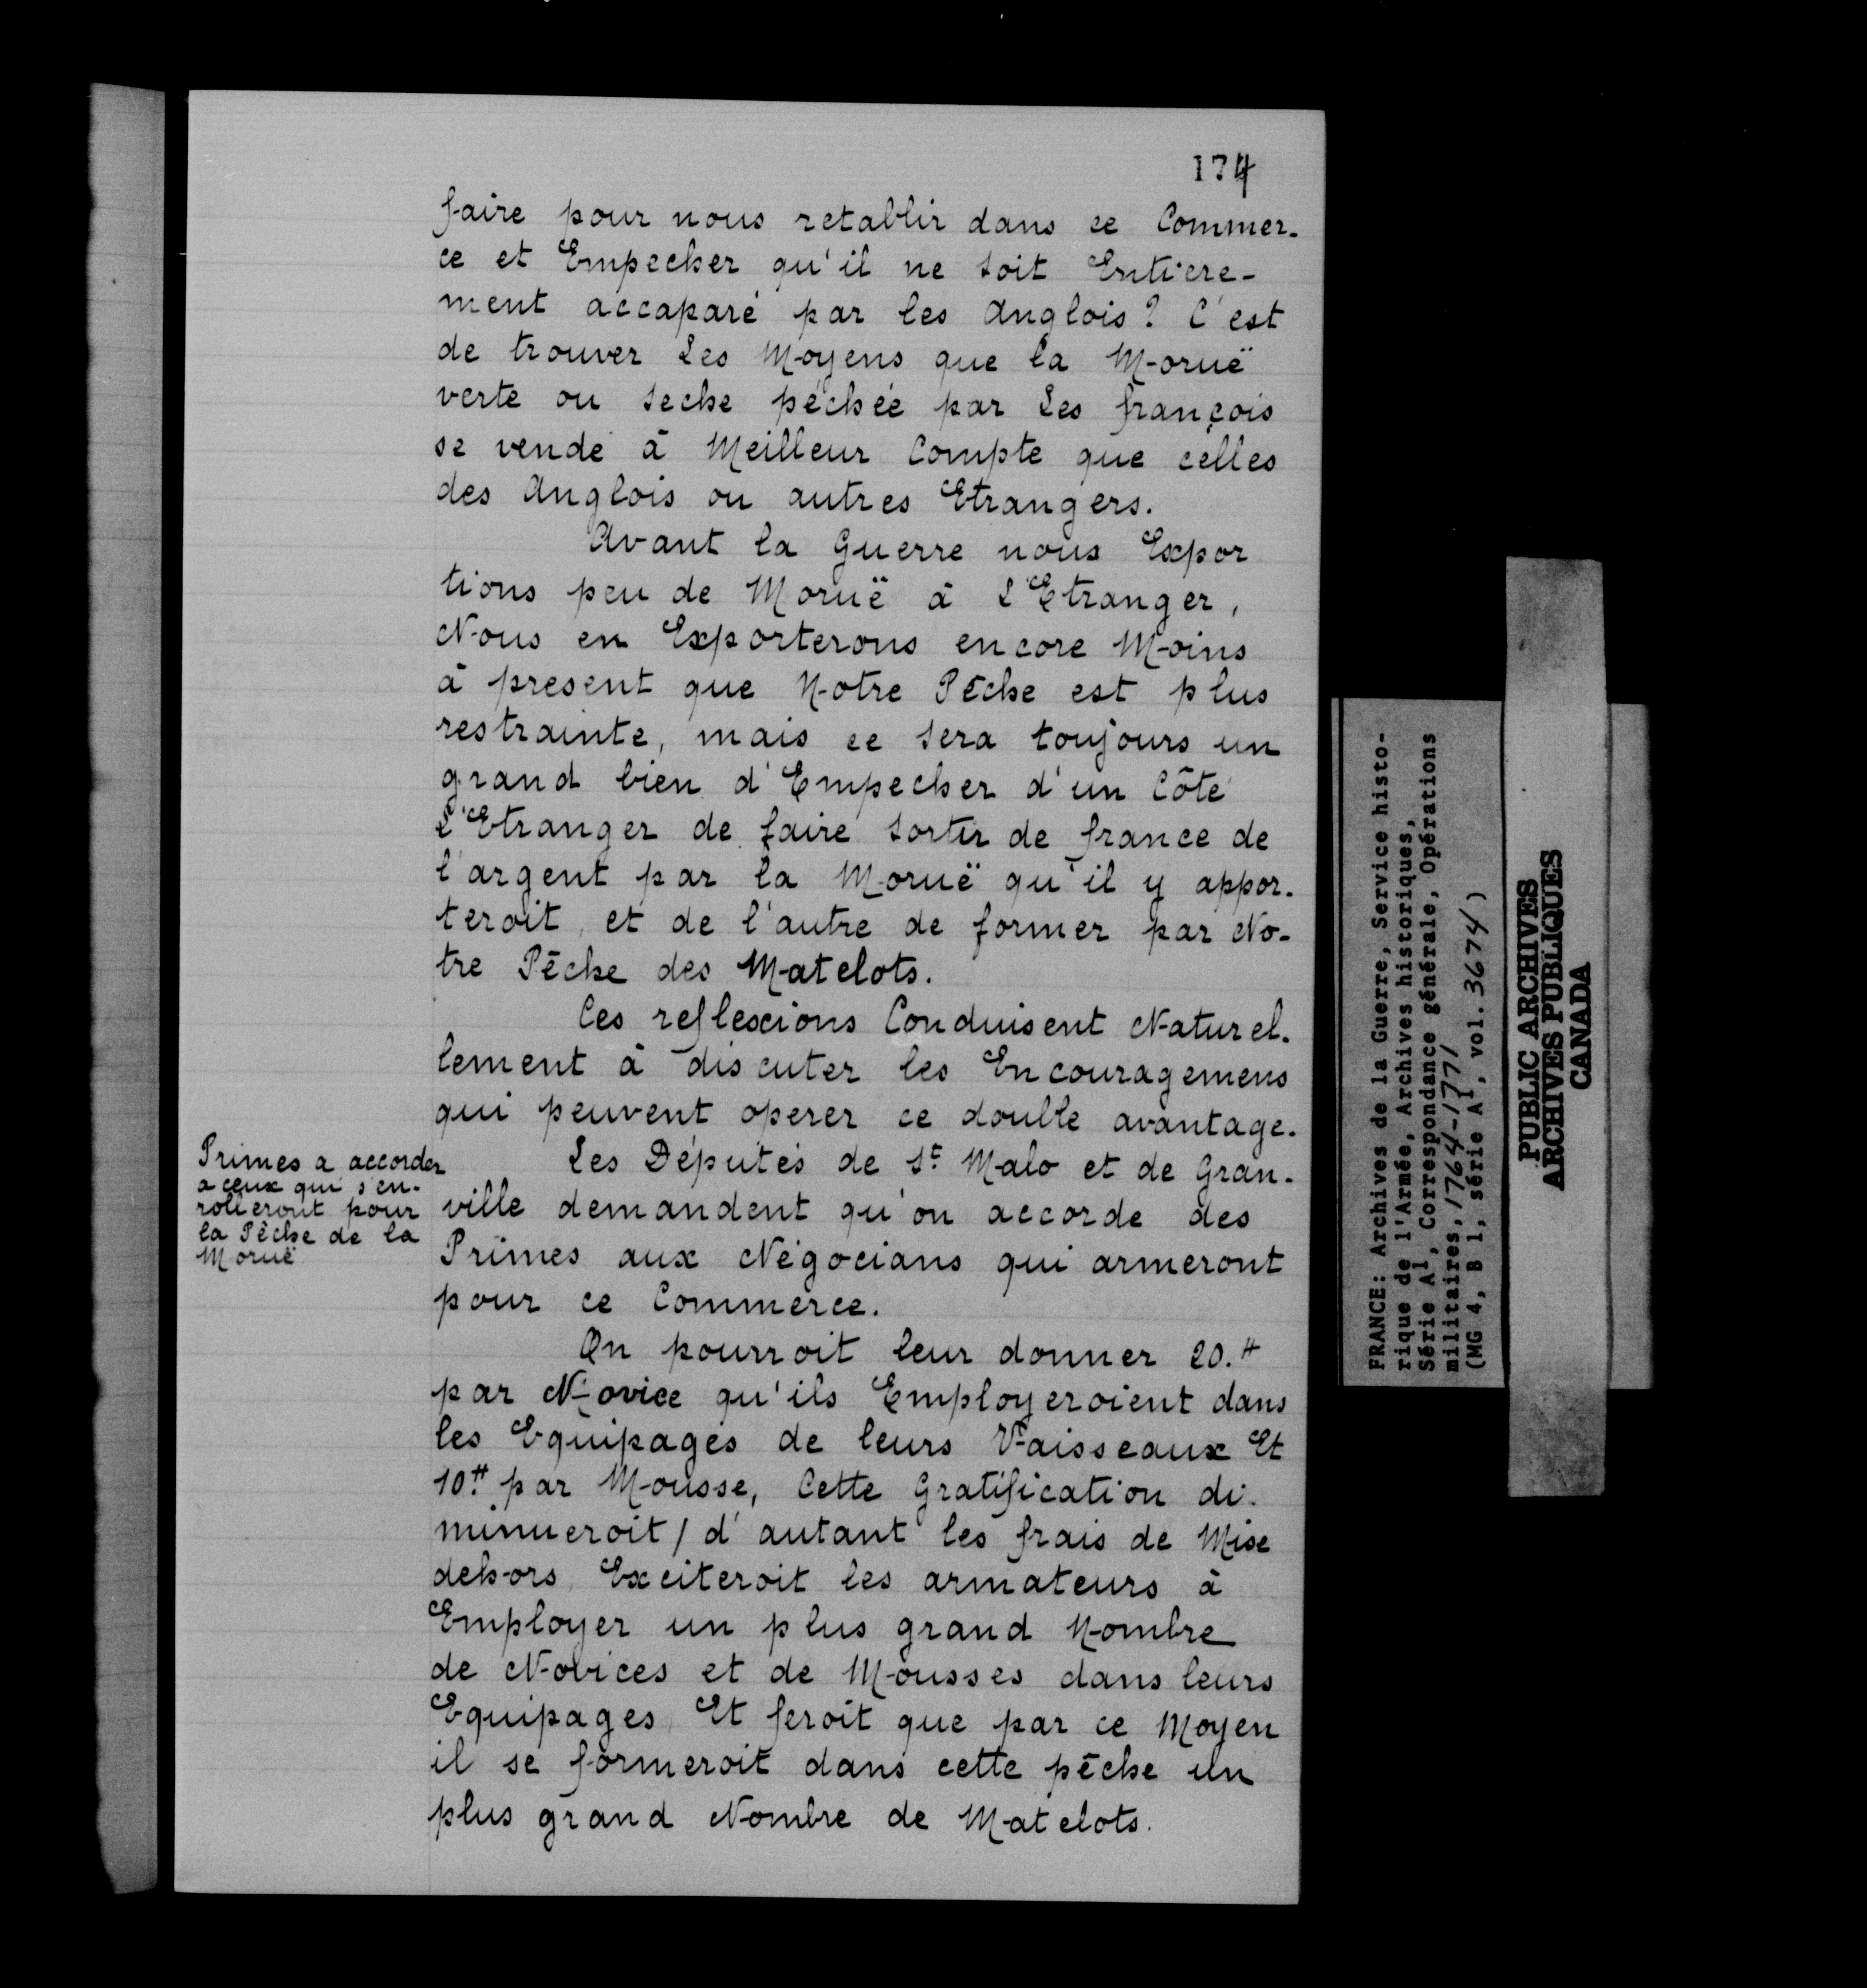 174
faire pour nous retablir dans ce Commer-
ce et Empecher qu'il ne soit Entiere-
ment accaparé par les Anglois? C'est
de trouver Les Moyens que la Moruë
verte ou seche pêchée par Les françois
se vende à Meilleur Compte que celles
des Anglois ou autres Etrangers.
Avant la Guerre nous Expor
tions peu de Moruë à L'Etranger,
Nous en Exporterons encore Moins
à present que Notre Pêche est plus
restrainte, mais ce sera toujours un
grand bien d'Empecher d'un Côté
L'Etranger de faire sortir de france de
l'argent par la Moruë qu'il y appor-
teroit, et de l'autre de former par No-
tre Pêche des Matelots.
Ces reflexions Conduisent Naturel-
lement à discuter les Encouragemens
qui peuvent operer ce double avantage.
Primes a accorder
a ceux qui s'en-
rolleront pour
la Pêche de la
Moruë
Les Députés de St Malo et de Gran-
ville demandent qu'on accorde des
Primes aux Négocians qui armeront
pour ce Commerce.
On pourroit leur donner 20.#
par Novice qu'ils Employeroient dans
les Equipages de leurs Vaisseaux Et
10.# par Mousse, Cette Gratification di-
minueroit / d'autant les frais de Mise
dehors, Exciteroit les armateurs à
Employer un plus grand Nombre
de Novices et de Mousses dans leurs
Equipages, Et feroit que par ce Moyen
il se formeroit dans cette pêche un
plus grand Nombre de Matelots.
FRANCE: Archives de la Guerre, Service histo-
rique de l'Armée, Archives historiques,
Série A1, Correspondance générale, Opérations
militaires, 1764-1771
(MG 4, B 1, série A1, vol. 3674)
PUBLIC ARCHIVES
ARCHIVES PUBLIQUES
CANADA